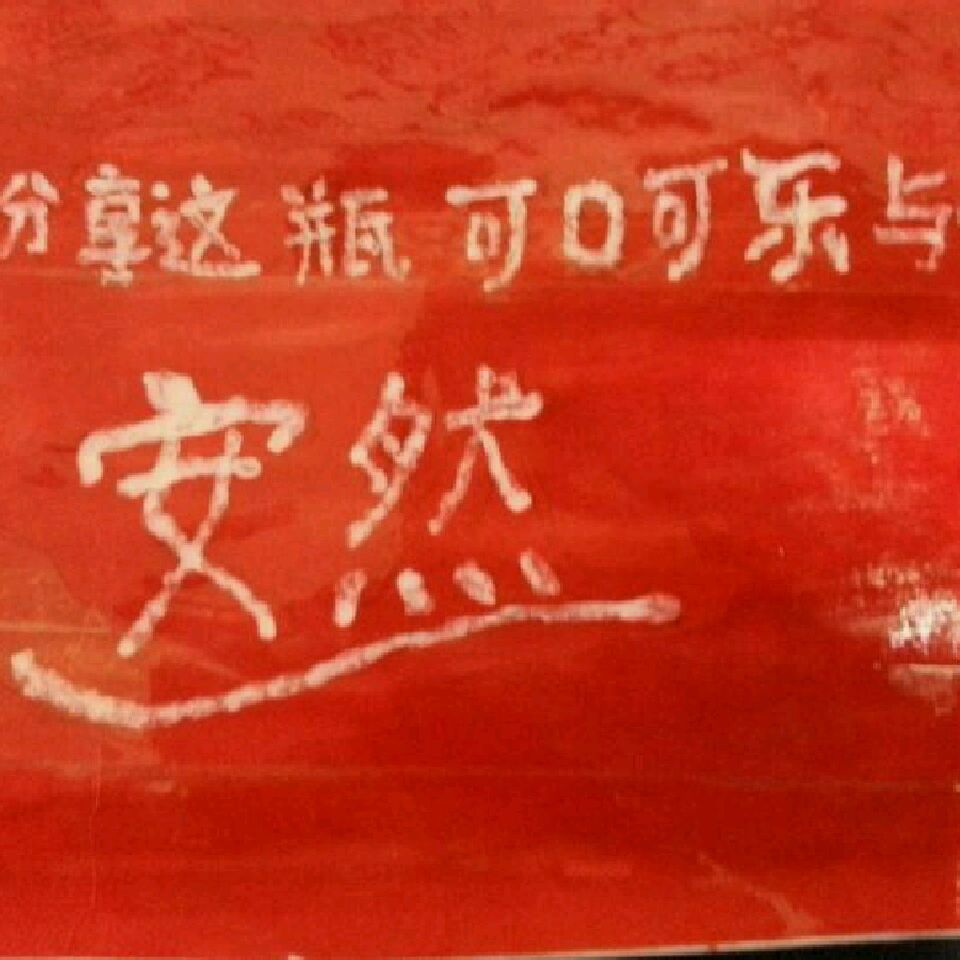 分享这瓶可口可乐与
安然